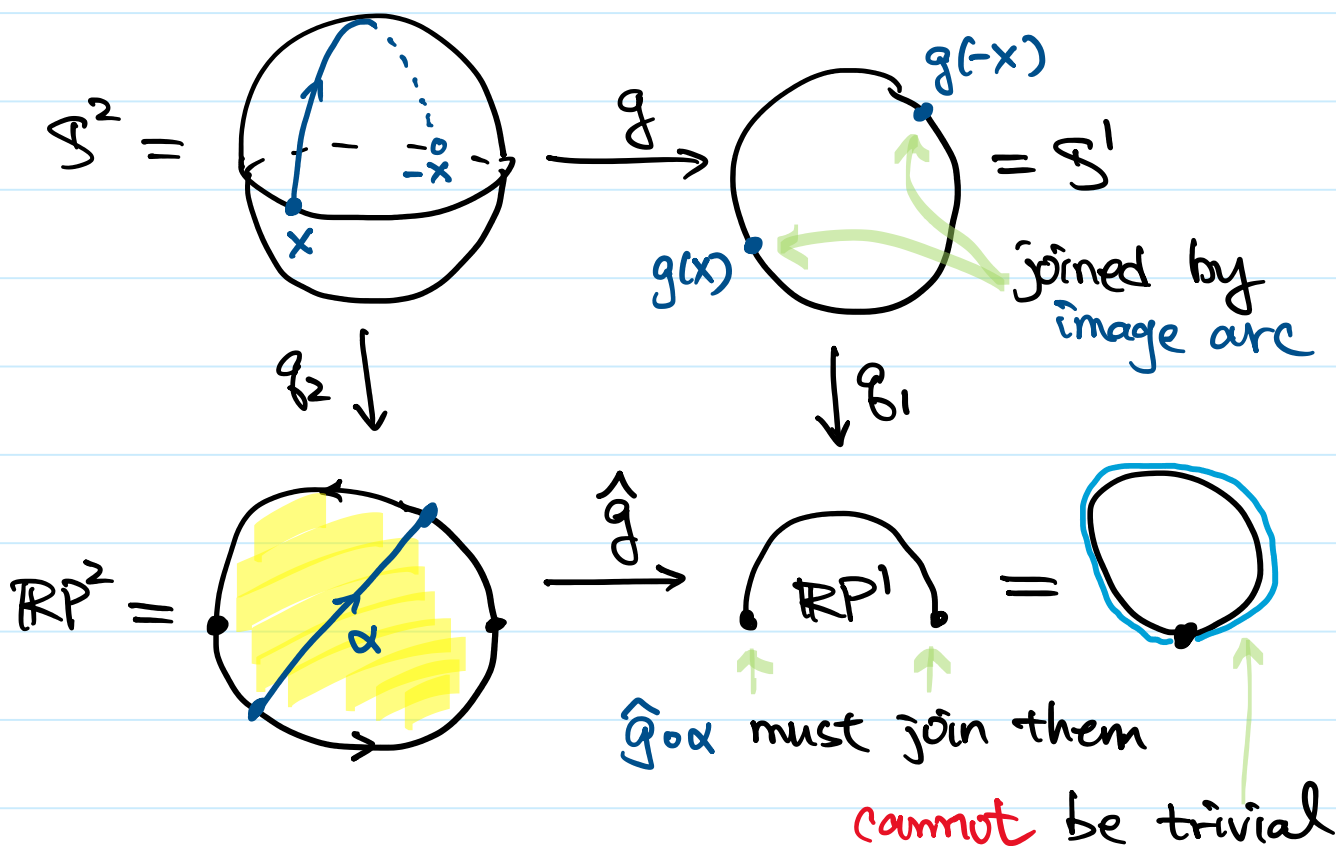 g(-x)
S² =
g
= S¹
-x
x
g(x)
joined by
image arc
q₂
q₁
ĝ
RP² =
α
RP¹
=
ĝ∘α must join them
cannot be trivial